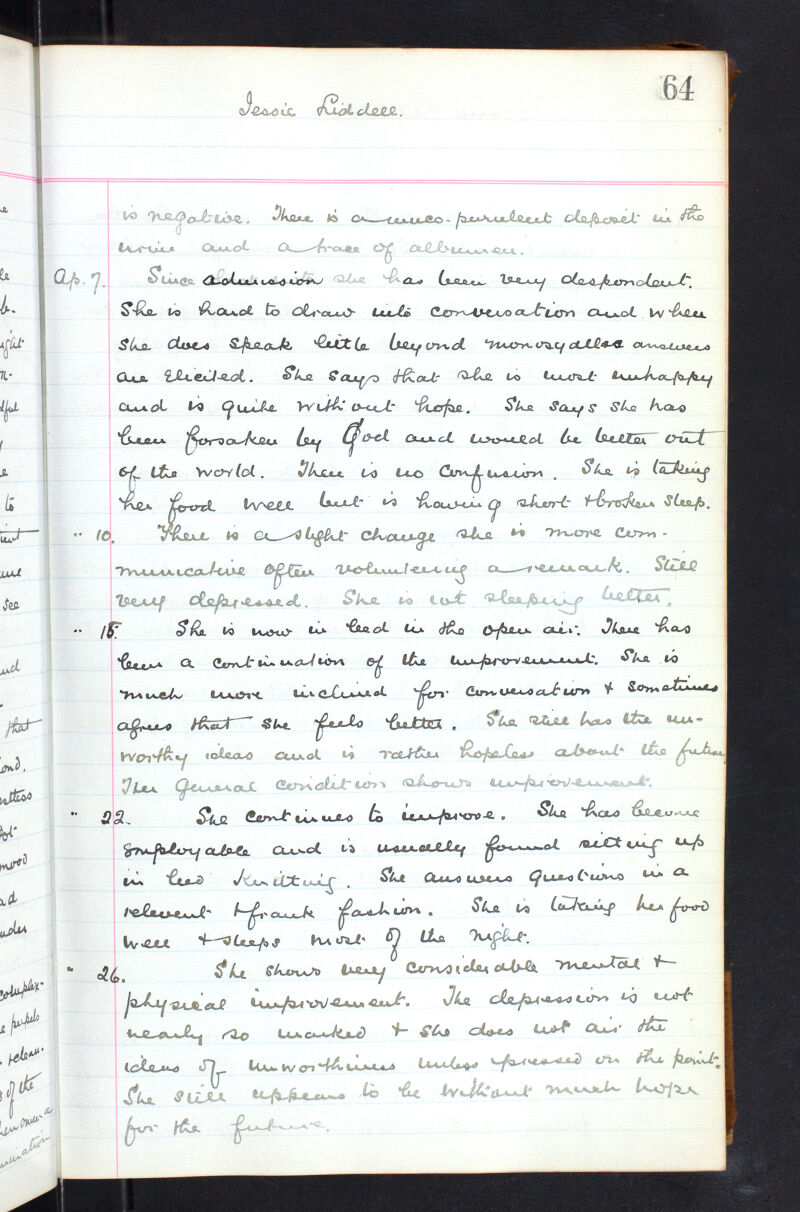 64
Jessie Liddell.
is negative. There is a muco-purulent deposit in the
urine and a trace of albumen.
Ap. 7. Since admission she has been very despondent.
She is hard to draw into conversation and when
she does speak little beyond monosyallic answers
are elicited. She says that she is most unhappy
and is quite without hope. She says she has
been forsaken by God and would be better out
of the world. There is no confusion. She is taking
her food well but is having short & broken sleep.
" 10. There is a slight change she is more com-
municative often volunteering a remark. Still
very depressed. She is not sleeping better.
" 15. She is now in bed in the open air. There has
been a continuation of the improvement. She is
much more inclined for conversation & sometimes
agrees that she feels better. She still has the un-
worthy ideas and is rather hopeless about the future.
Her general condition shows improvement.
" 22. She continues to improve. She has become
employable and is usually found sitting up
in bed knitting. She answers questions in a
relevent & frank fashion. She is taking her food
well & sleeps most of the night.
" 26. She shows very considerable mental &
physical improvement. The depression is not
nearly so marked & she does not air the
ideas of unworthiness unless pressed on the point.
She still appears to be without much hope
for the future.
ight
dful
to
see
that
ond.
mood
complex-
e pupils
of the